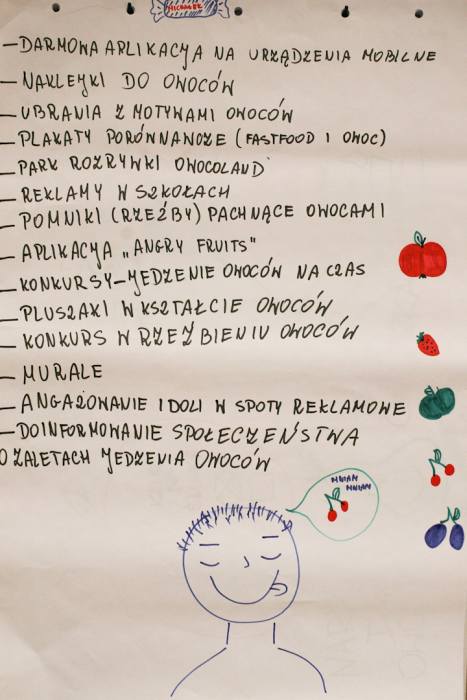 MICHAŁEK
– DARMOWA APLIKACJA NA URZĄDZENIA MOBILNE
– NAKLEJKI DO OWOCÓW
– UBRANIA Z MOTYWAMI OWOCÓW
– PLAKATY PORÓWNAWCZE (FASTFOOD I OWOC)
– PARK ROZRYWKI OWOCOLAND
– REKLAMY W SZKOŁACH
– POMNIKI (RZEŹBY) PACHNĄCE OWOCAMI
– APLIKACJA „ANGRY FRUITS"
– KONKURSY – JEDZENIE OWOCÓW NA CZAS
– PLUSZAKI W KSZTAŁCIE OWOCÓW
– KONKURS W RZEŹBIENIU OWOCÓW
– MURALE
– ANGAŻOWANIE IDOLI W SPOTY REKLAMOWE
– DOINFORMOWANIE SPOŁECZEŃSTWA
O ZALETACH JEDZENIA OWOCÓW
MNIAM
MNIAM